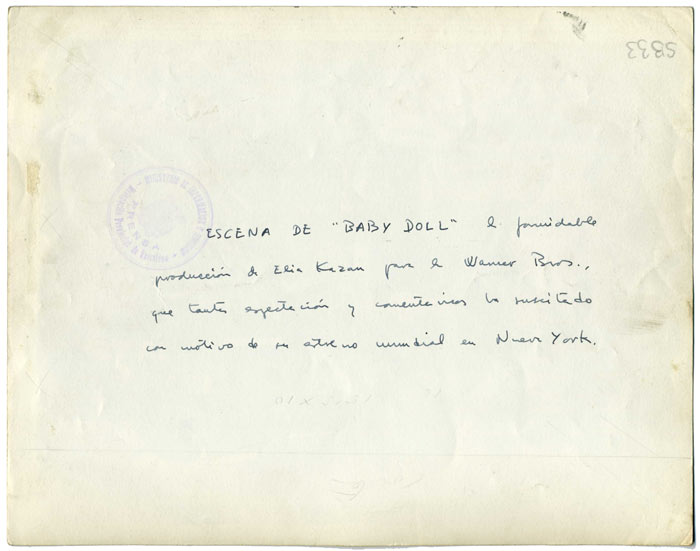 5833
PRENSA
ESCENA DE "BABY DOLL" la formidable
producción de Elia Kazan para la Warner Bros.,
que tanta expectación y comentarios ha suscitado
con motivo de su estreno mundial en Nueva York.